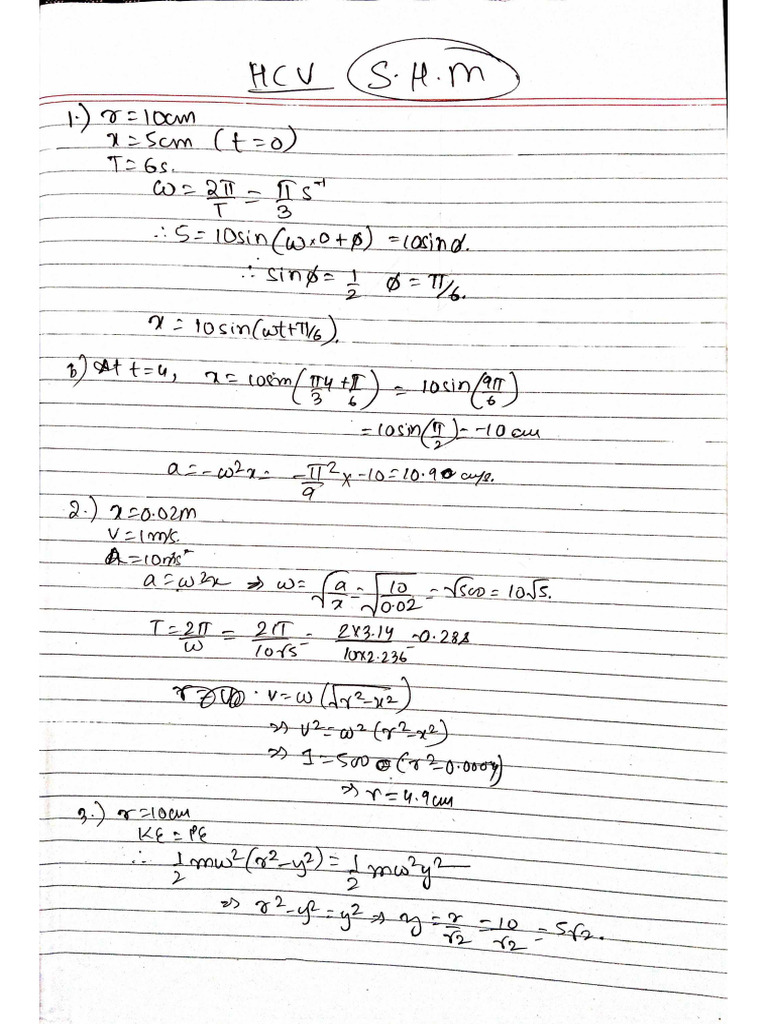 HCV S.H.M
1.) r=10cm
x=5cm (t=0)
T=6s.
ω=2π/T=π/3 s⁻¹
∴5=10sin(ω×0+φ)=10sinφ.
∴sinφ=1/2 φ=π/6.
x=10sin(ωt+π/6).
b) At t=4, x=10sin(π4/3+π/6)=10sin(9π/6)
=10sin(π/2)=-10cm
a=-ω²x=-π²/9×-10=10.9
2.) x=0.02m
V=1m/s.
A=10m/s²
a=ω²x ⇒ ω=√(a/x)=√(10/0.02)=√500=10√5.
T=2π/ω=2π/10√5=2×3.14/10×2.236=0.288
V=ω(√r²-x²)
⇒V²=ω²(r²-x²)
⇒1=500(r²-0.0004)
⇒r=4.9cm
3.) r=10cm
KE=PE
∴1/2mω²(r²-y²)=1/2mω²y²
⇒r²-y²=y²⇒y=r/√2=10/√2=5√2.